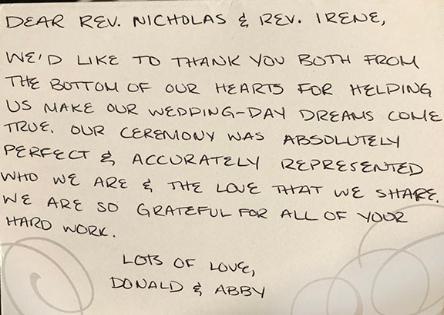 DEAR REV. NICHOLAS & REV. IRENE,
WE'D LIKE TO THANK YOU BOTH FROM
THE BOTTOM OF OUR HEARTS FOR HELPING
US MAKE OUR WEDDING-DAY DREAMS COME
TRUE. OUR CEREMONY WAS ABSOLUTELY
PERFECT & ACCURATELY REPRESENTED
WHO WE ARE & THE LOVE THAT WE SHARE.
WE ARE SO GRATEFUL FOR ALL OF YOUR
HARD WORK.
LOTS OF LOVE,
DONALD & ABBY